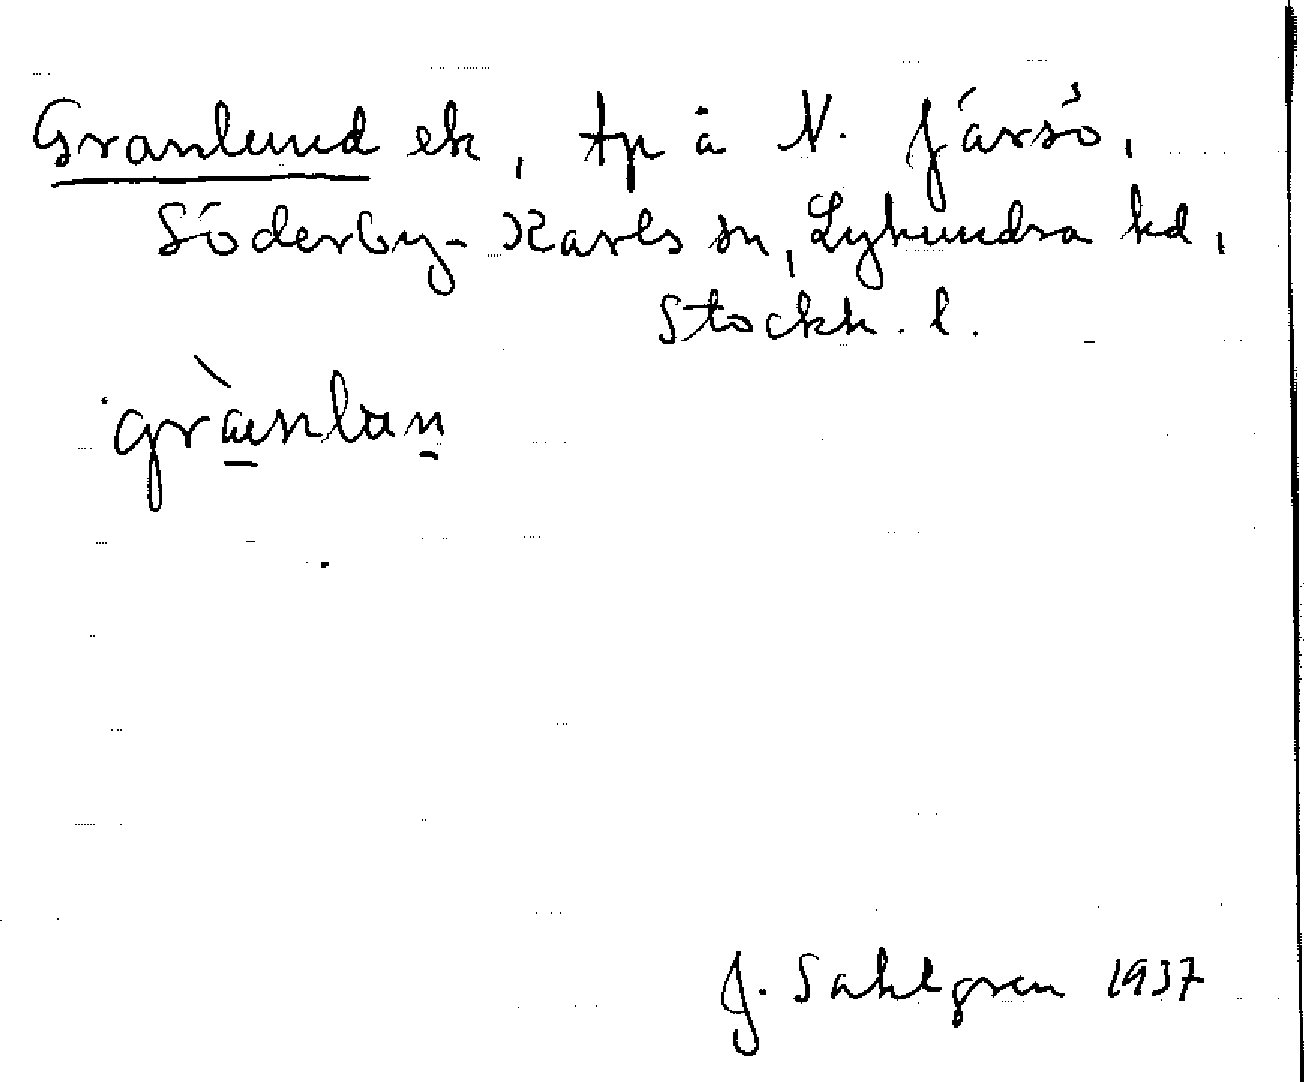 Granlund ek, tp å N. Järsö,
Söderby-Karls sn, Lyhundra hd,
Stockh. l.
grànlun
J. Sahlgren 1937